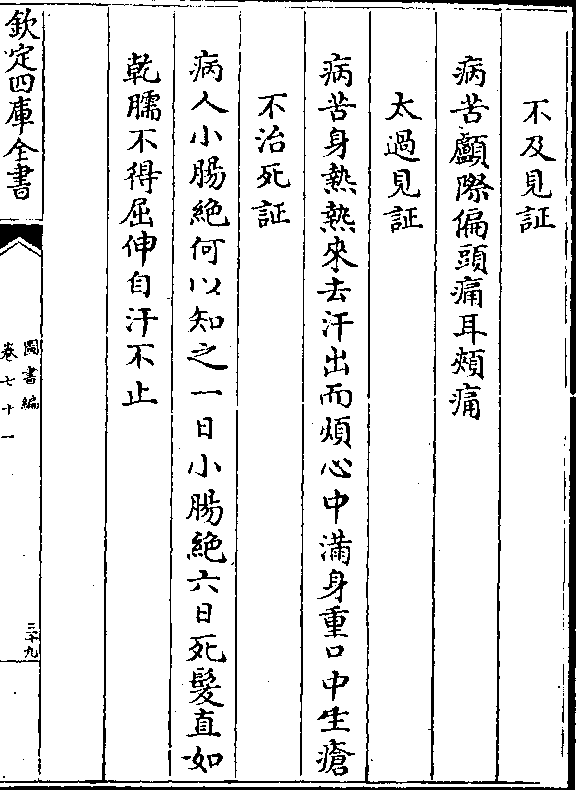 不及見証
病苦顱際偏頭痛耳頰痛
太過見証
病苦身熱熱來去汗出而煩心中滿身重口中生瘡
不治死証
病人小腸絕何以知之一日小腸絕六日死髮直如
乾臑不得屈伸自汗不止
欽定四庫全書
圖書編
卷七十一
三十九